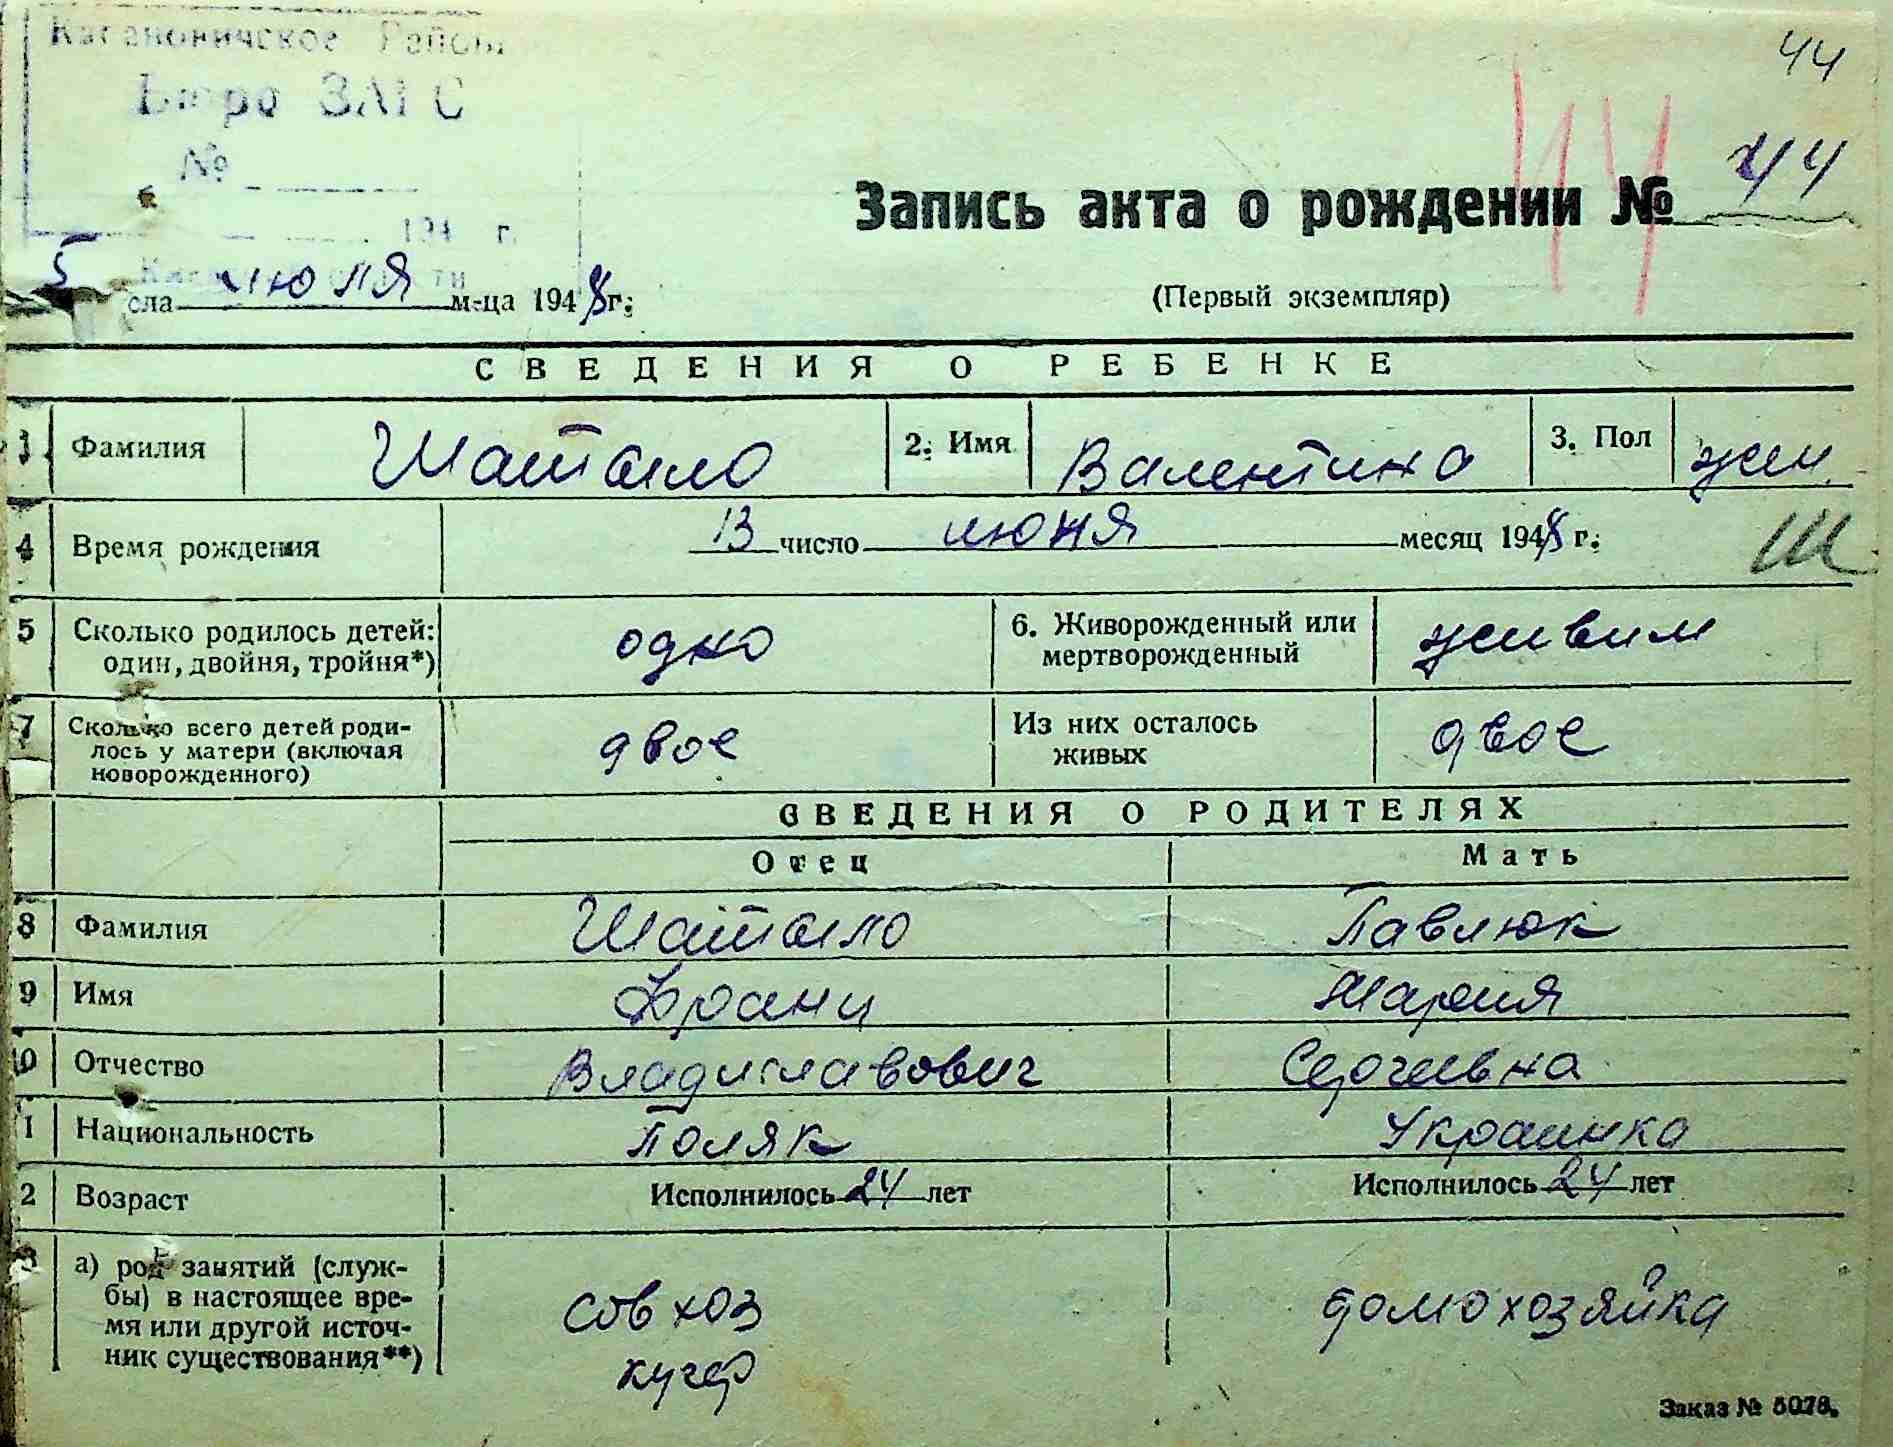 44
Кагановичское Район
Бюро ЗАГС
№
194 г.
Запись акта о рождении № 44
44
5 сла июля м-ца 1948 г.
(Первый экземпляр)
СВЕДЕНИЯ О РЕБЕНКЕ
1 Фамилия Шатыло 2. Имя Валентина 3. Пол жен.
4 Время рождения 13 число июня месяц 1948 г. Ш
5 Сколько родилось детей: один, двойня, тройня*) одно 6. Живорожденный или мертворожденный живим
7 Сколько всего детей роди-
лось у матери (включая
новорожденного) двое Из них осталось живых двое
СВЕДЕНИЯ О РОДИТЕЛЯХ
Отец Мать
8 Фамилия Шатыло Павлюк
9 Имя Франц Мария
10 Отчество Владиславович Сергеевна
1 Национальность Поляк Украинка
2 Возраст Исполнилось 24 лет Исполнилось 24 лет
3 а) род занятий (служ-
бы) в настоящее вре-
мя или другой источ-
ник существования**) совхоз кучер домохозяйка
Заказ № 5078.